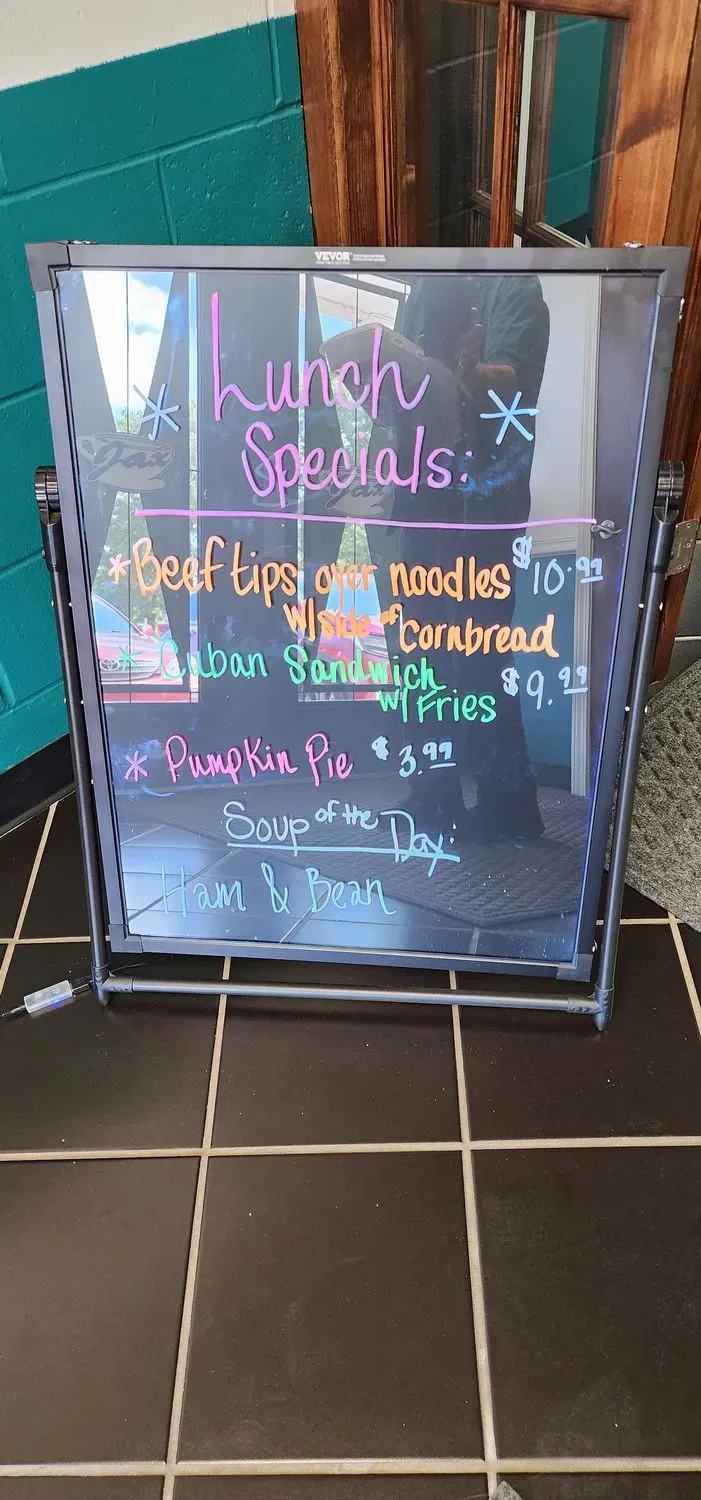 VEVOR
Lunch
Specials:
Jax
Jax
*Beef tips over noodles $10.99
w/side of Cornbread
* Cuban Sandwich
w/ Fries $9.99
* Pumpkin Pie $3.99
Soup of the Day:
Ham & Bean